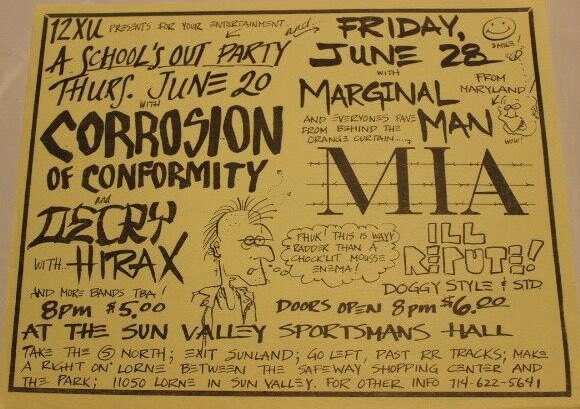 12XU PRESENTS FOR YOUR ENTERTAINMENT...
A SCHOOL'S OUT PARTY
THURS. JUNE 20
WITH
CORROSION
OF CONFORMITY
and
DECRY
WITH HIRAX
AND MORE BANDS TBA!
8PM $5.00
and...
FRIDAY,
JUNE 28
SMILE!
WITH
MARGINAL
MAN
FROM
MARYLAND!
AND EVERYONES FAVE
FROM BEHIND THE
ORANGE CURTAIN....
WOW!
MIA
PHUK! THIS IS WAY
RADDER THAN A
CHOCK'LIT MOUSSE
ENEMA!
ILL
REPUTE!
DOGGY STYLE & STD
DOORS OPEN 8PM $6.00
AT THE SUN VALLEY SPORTSMANS HALL
TAKE THE 5 NORTH; EXIT SUNLAND; GO LEFT, PAST RR TRACKS; MAKE
A RIGHT ON LORNE BETWEEN THE SAFEWAY SHOPPING CENTER AND
THE PARK; 11050 LORNE IN SUN VALLEY. FOR OTHER INFO 714-622-5641